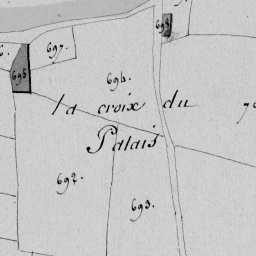 697.
696.
la croix du
Palais
692.
693.